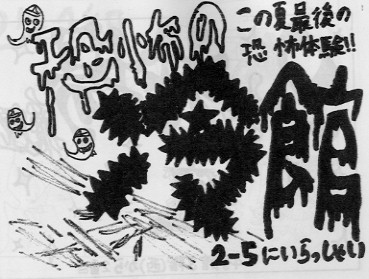 恐怖の
館
この夏最後の
恐怖体験!!
2-5にいらっしゃい